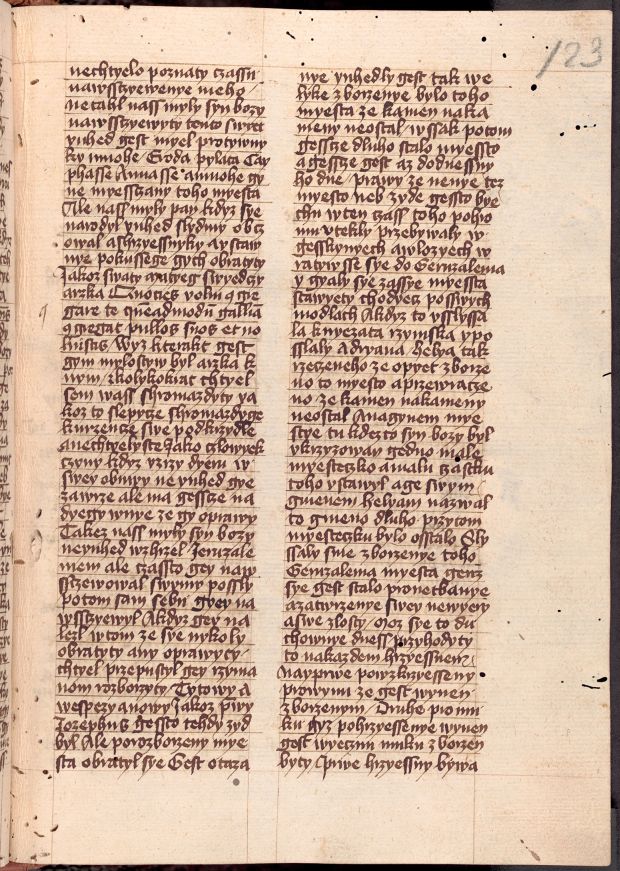 123
nechtyelo poznaty czassu
nawsstyewenye neho
Netahl nass myly syn bozy
nawsstyewyty tento swyet
ynhed gest myel protywny
ky mnohe Eroda pylata Cay
phasse Annasse a mnohe gy
ne myesstany toho myesta
Ale nass myly pan kdyz sye
narodyl ynhed slydmy obcz
owal a hrzyessnyky a ystaw
nye pokussege gych obratyty
Jakoz swaty matyeg swyedczy
arzka Quocies volui 9gre
gare te queadmodu gallina
9gregat pullos suos et no
luistis Wyz kterakt gest
gym mylostyw byl arzka k
nym zkolykokrat chtyel
sem wass shromazdyty ya
koz to slepycze shromazdyge
kurzencze swe podkrzydle
anechtyelyste Jako czlowyek
czyny kdyz vzrzy dyeru w
swey obuwy ne ynhed gye
zawrze ale ma gessge na
dyegy wnye ze gy oprawy
Takez nass myly syn bozy
neynhed wzhrzel Jeruzale
mem ale czassto gey naw
sstyewowal swymy possly
potom sam sebu gyey na
wsstyewyl Akdyz gey na
lezl w tom ze sye nykoly
obratyty any oprawyty
chtyel przepustyl gey rzyma
nom rozborzyty Tytowy A
wespezyanowy Jakoz pissy
Jozephus gessto tehdy zyd
byl Ale porozborzeny mye
sta obratyl sye Gest otaza
nye ynhedly gest tak we
lyke zborzenye bylo toho
myesta ze kamen naka
meny neostal wssak potom
gesscze dluho stalo myessto
a gescze gest az dodnessny
ho dne prawy ze nenye tez
myesto neb zyde gessto bye
chu w ten czass toho pobo
nu vtekly przebywaly w
gesskynyech awlozyech w
ratywsse sye do Geruzalema
y gyaly sye zassye myessta
stawyety chodyecz poswych
modlach Akdyz to vslyssa
la knyezata rzymska ypo
sslaly Adryana helya tak
rzeczeneho ze opyet zborze
no to myesto a przewracze
no ze kamen nakameny
neostal Anagynem mye
stye tu kdezto syn bozy byl
vkrzyzowan gedno male
myesteczko amalu czastku
toho vstawyl a ge swym
gmenem helyam nazwal
to gmeno dluho przytom
myesteczku bylo osstalo Sly
ssaly sme zborzenye toho
Geruzalema myesta genz
sye gest stalo pronetbanye
azatwrzenye swey newyery
aswe zlosty Moz sye to du
chownye dness przyhodyty
to nakazdem hrzyessnem
Nayprwe porzkrzyesseny
prowynu ze gest wynen
zborzenym Druhe pomu
ku gyz pohrzyessenye wynen
gest wyecznu muku zborzen
byty Prwe hrzyessny bywa